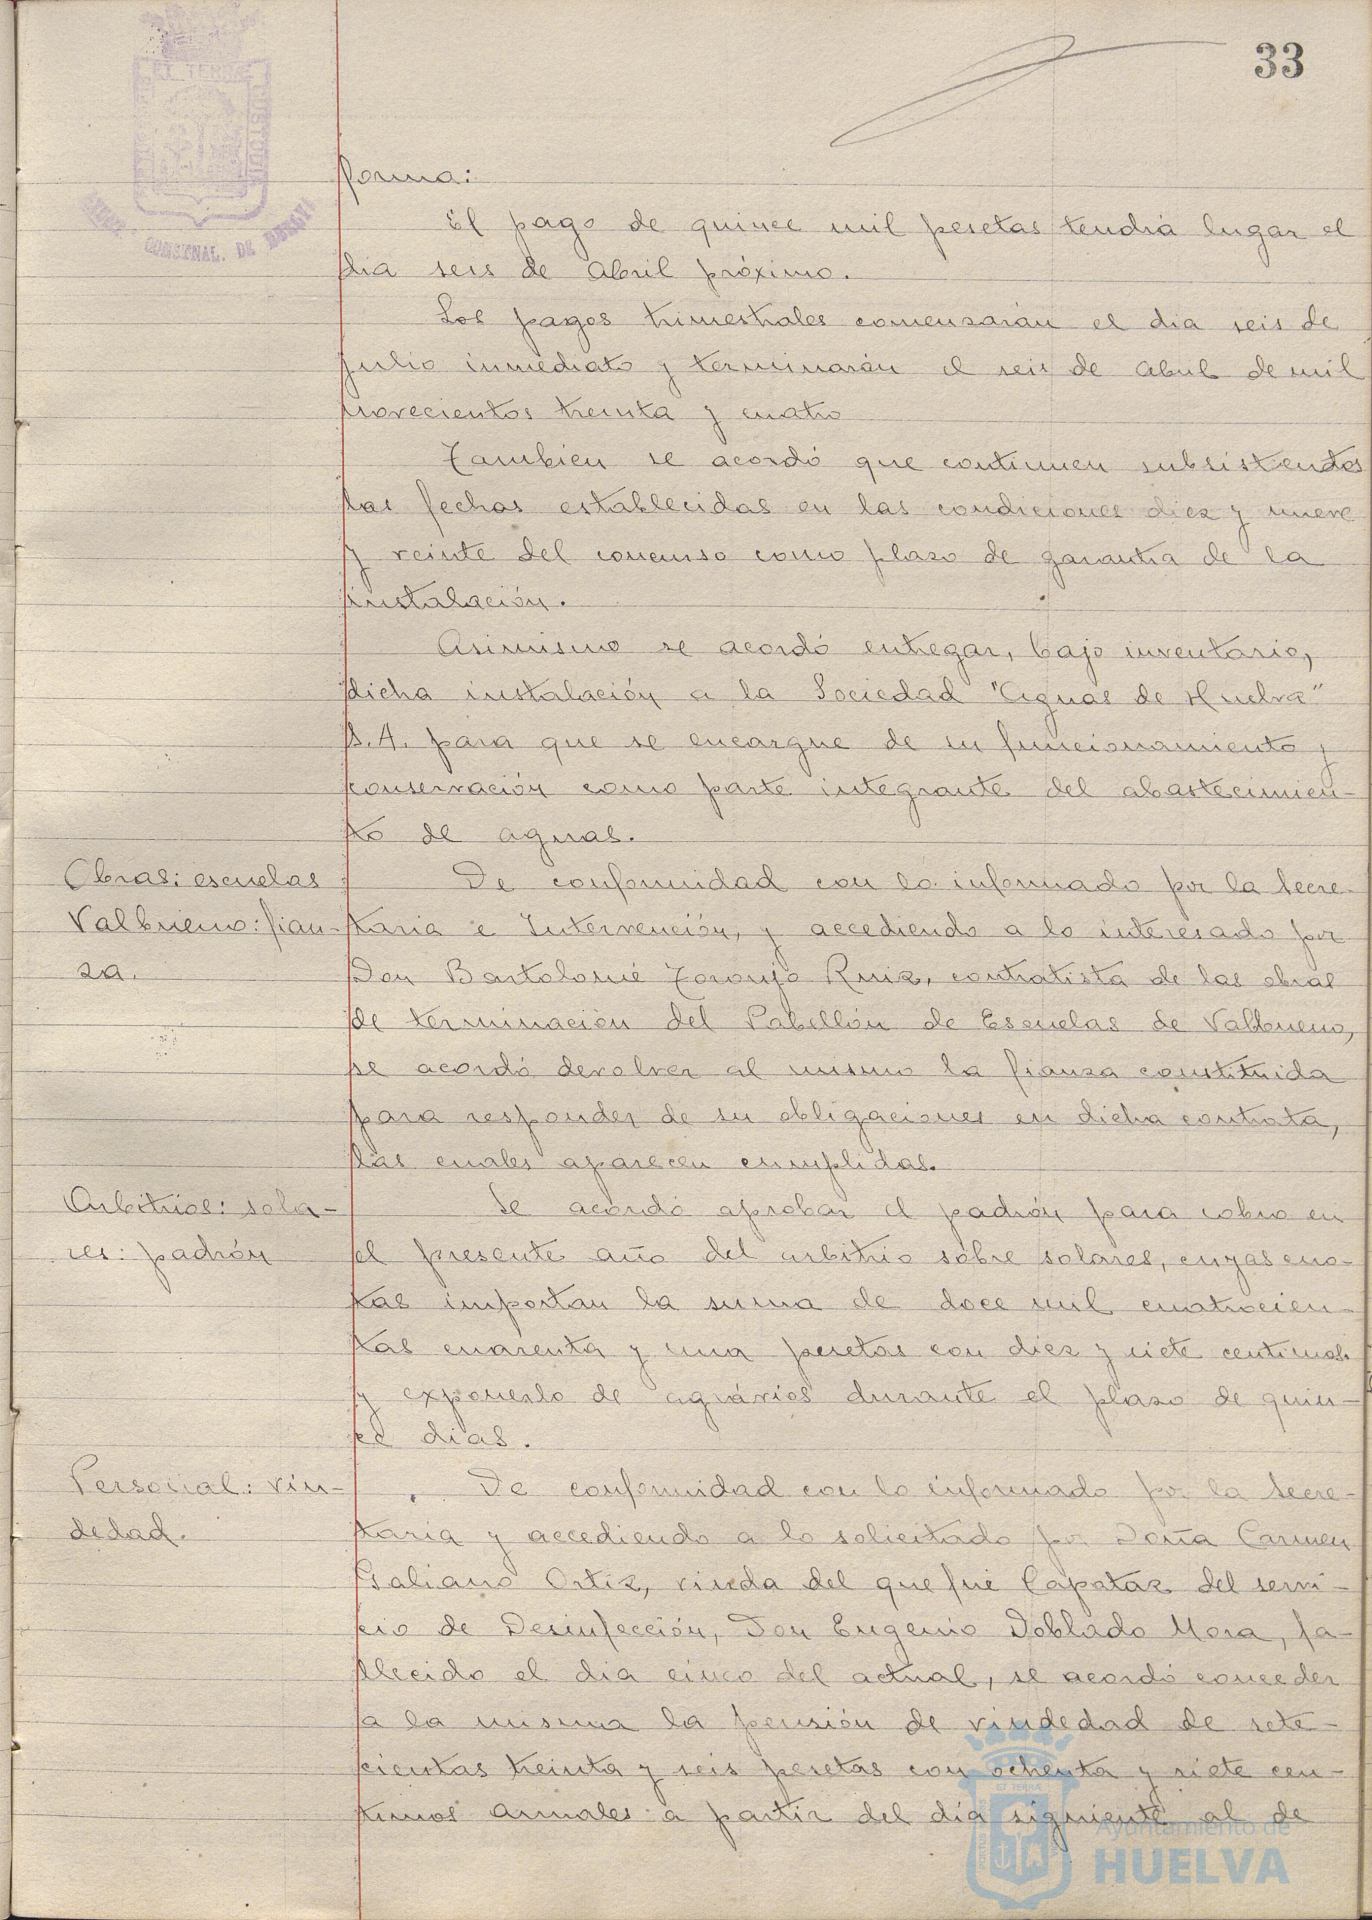 33
ET TERRÆ
CUSTODIA
forma:
El pago de quince mil pesetas tendrá lugar el
dia seis de Abril próximo.
Los pagos trimestrales comenzarán el dia seis de
julio inmediato y terminarán el seis de Abril de mil
novecientos treinta y cuatro
Tambien se acordó que continuen subsistentes
las fechas establecidas en las condiciones diez y nueve
y veinte del concurso como plazo de garantia de la
instalación.
Asimismo se acordó entregar, bajo inventario,
dicha instalación a la Sociedad "Aguas de Huelva"
S.A. para que se encargue de su funcionamiento y
conservación como parte integrante del abastecimien-
to de aguas.
Obras: escuelas
Valbueno: fian-
za.
De conformidad con lo informado por la Secre-
taria e Intervención, y accediendo a lo interesado por
Don Bartolomé Toronjo Ruiz, contratista de las obras
de terminación del Pabellón de Escuelas de Valbueno,
se acordó devolver al mismo la fianza constituida
para responder de su obligaciones en dicha contrata,
las cuales aparecen cumplidas.
Arbitrios: sola-
res: padrón
Se acordó aprobar el padrón para cobro en
el presente año del arbitrio sobre solares, cuyas cuo-
tas importan la suma de doce mil cuatrocien-
tas cuarenta y una pesetas con diez y siete centimos
y exponerlo de agravios durante el plazo de quin-
ce dias.
Personal: viu-
dedad.
De conformidad con lo informado por la Secre-
taria y accediendo a lo solicitado por Doña Carmen
Galiano Ortiz, viuda del que fué Capataz del servi-
cio de Desinfección, Don Eugenio Doblado Mora, fa-
llecido el dia cinco del actual, se acordó conceder
a la misma la pensión de viudedad de sete-
cientas treinta y seis pesetas con ochenta y siete cen-
timos anuales a partir del dia siguiente al de
Ayuntamiento de
HUELVA